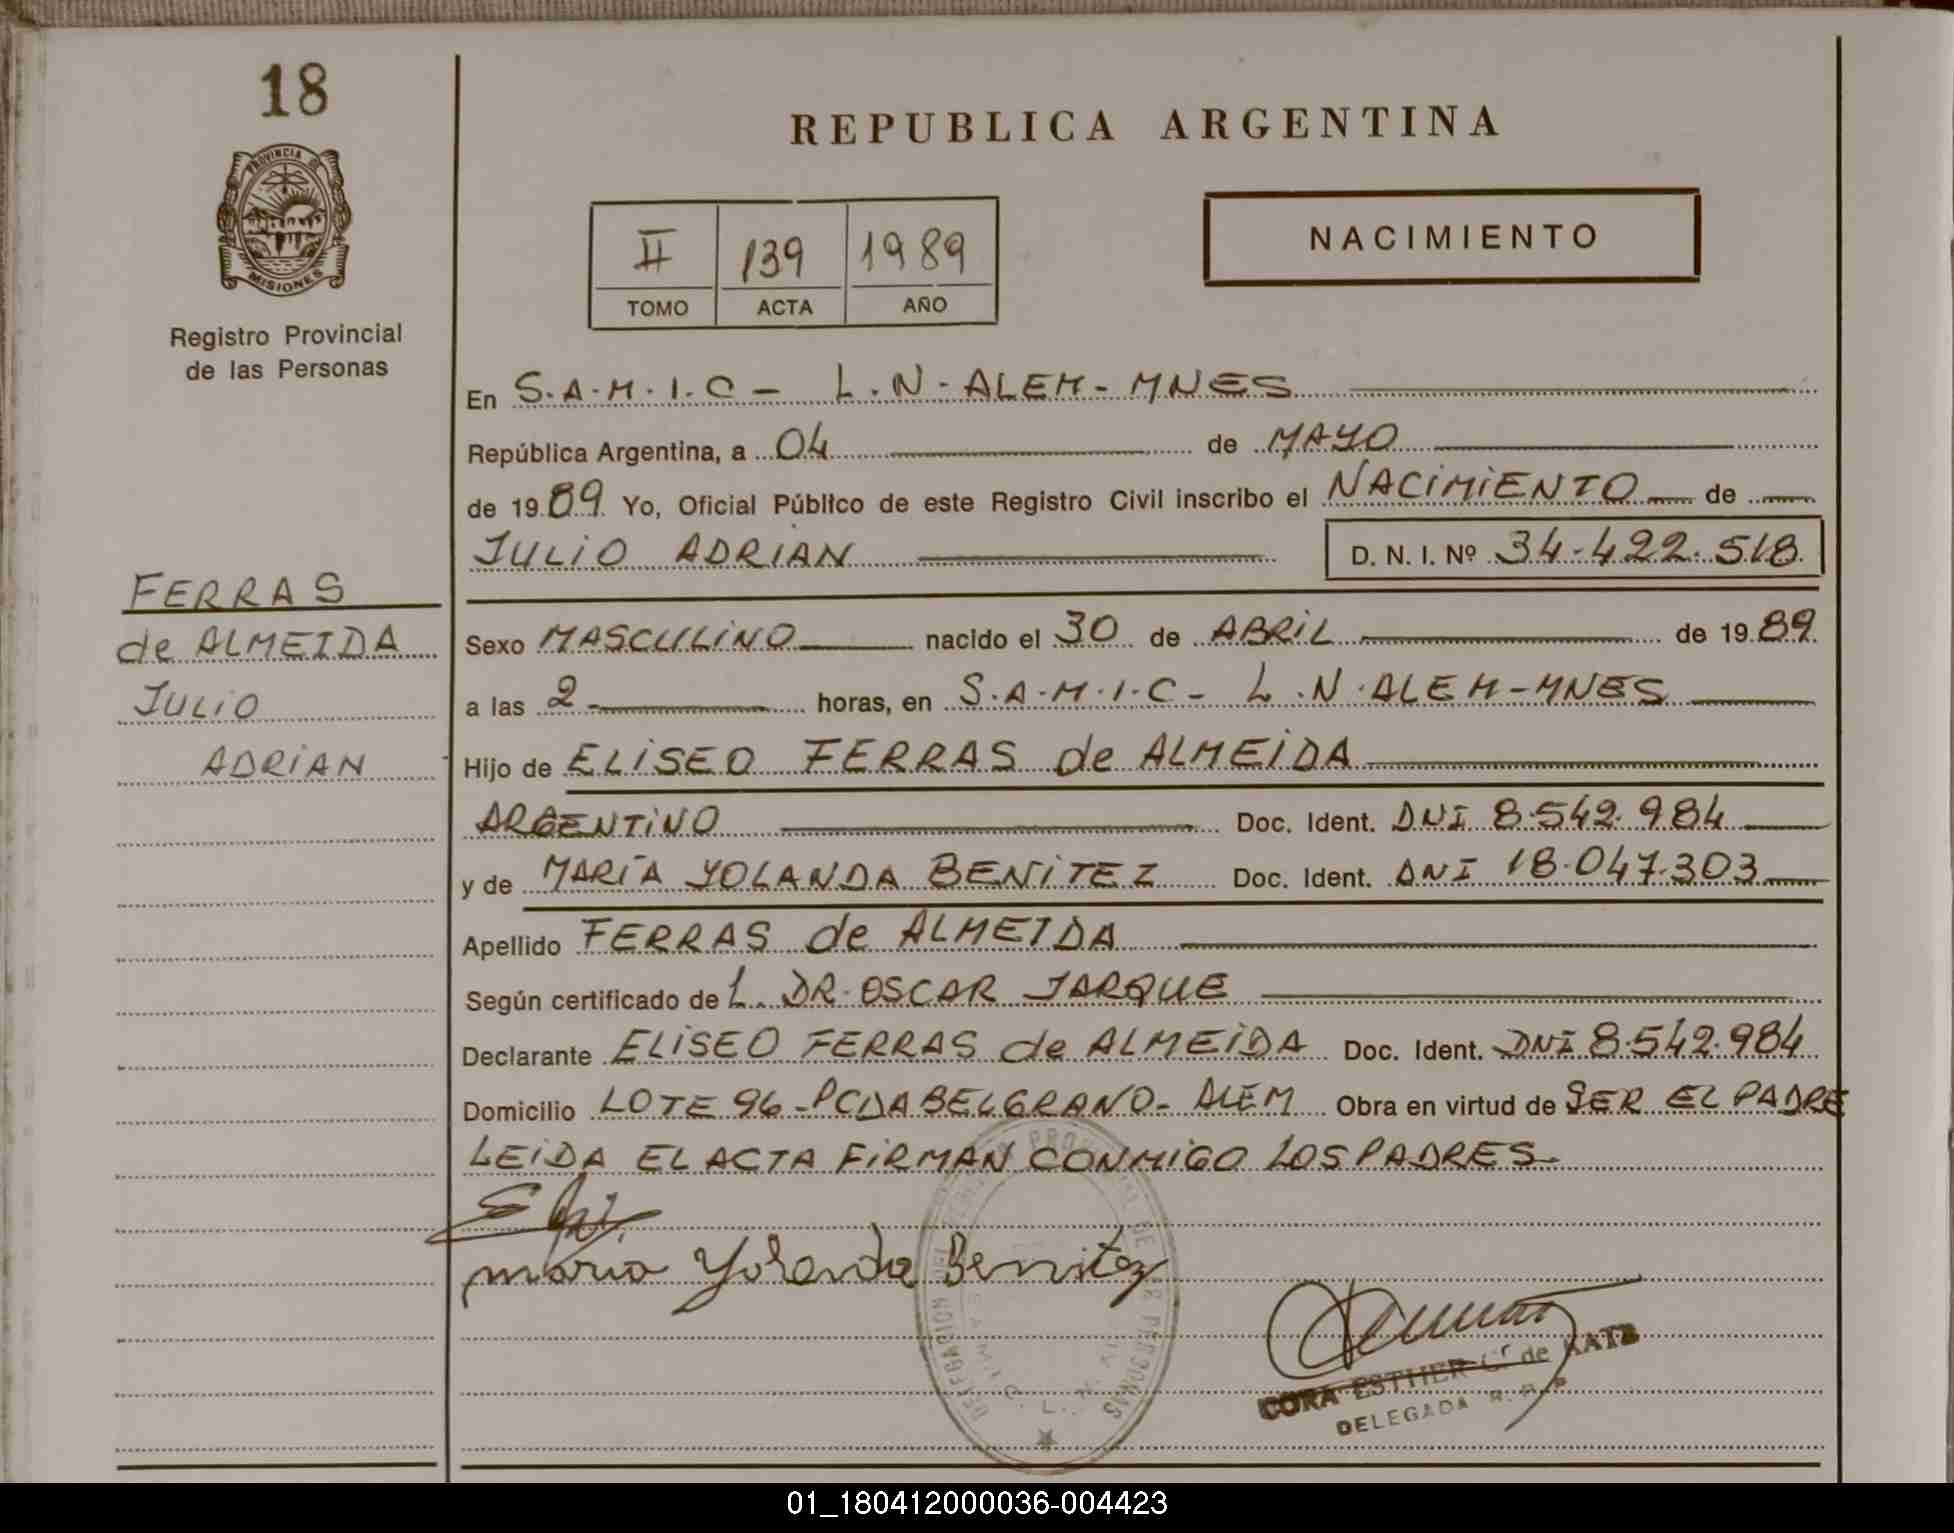 18
PROVINCIA DE
MISIONES
Registro Provincial
de las Personas
FERRAS
de ALMEIDA
JULIO
ADRIAN
REPUBLICA ARGENTINA
II 139 1989
TOMO ACTA AÑO
NACIMIENTO
En S.A.M.I.C - L.N-ALEM-MNES
República Argentina, a 04 de MAYO
de 1989 Yo, Oficial Público de este Registro Civil inscribo el NACIMIENTO de
JULIO ADRIAN D. N. I. Nº 34.422.518
Sexo MASCULINO nacido el 30 de ABRIL de 1989
a las 2 horas, en S.A.M.I.C - L.N.ALEM-MNES
Hijo de ELISEO FERRAS de ALMEIDA
ARGENTINO Doc. Ident. DNI 8.542.984
y de MARÍA YOLANDA BENITEZ Doc. Ident. DNI 18.047.303
Apellido FERRAS de ALMEIDA
Según certificado de L. DR. OSCAR JARQUE
Declarante ELISEO FERRAS de ALMEIDA Doc. Ident. DNI 8.542.984
Domicilio LOTE 96-PCDA BELGRANO- ALEM Obra en virtud de SER EL PADRE
LEIDA EL ACTA FIRMAN CONMIGO LOS PADRES
maria Yolanda Benitez
CORA ESTHER de KATZ
DELEGADA R. P. P.
01_180412000036-004423